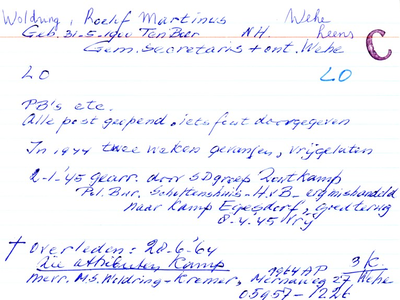 Woldring, Roelf Martinus Wehe
Geb. 31-5-1900 Ten Boer N.H. Leens
Gem. Secretaris + ont. Wehe C
LO LO
PB's etc.
Alle post geopend, iets fout doorgegeven
In 1944 twee weken gevangen, vrijgelaten
2-1-'45 gearr. door SD groep Zoutkamp
Pol. Bur. Scholtenshuis - HvB - erg mishandeld
naar Kamp
8-4-45 vrij
† overleden: 28-6-'64
Zie attributen Kamp 3/C
Mevr. M.S. Woldring-Kremer, Mernaweg 27, Wehe
9964 AP
05957-1226